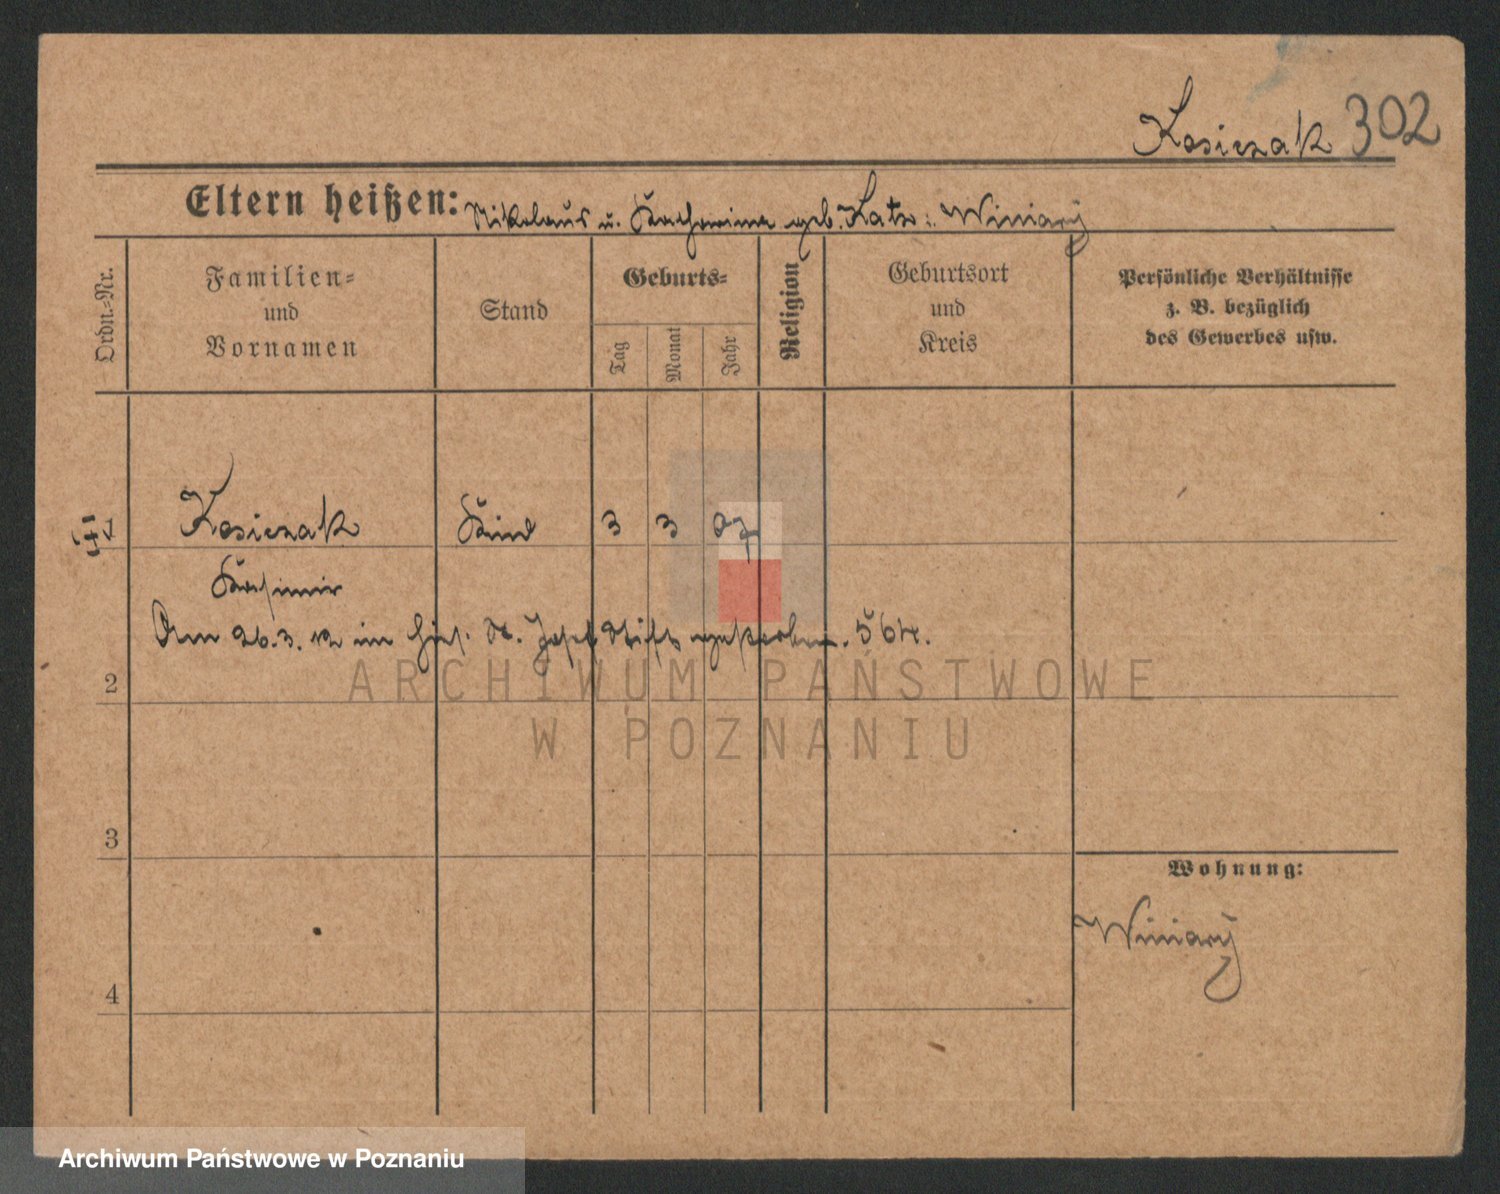 Kosiczak 302
Eltern heißen: Nikolaus u. Katharina geb. Winiary
Ordn.-Nr.
Familien-
und
Vornamen
Stand
Geburts-
Tag
Monat
Jahr
Religion
Geburtsort
und
Kreis
Persönliche Verhältnisse
z. B. bezüglich
des Gewerbes usw.
1 Kosiczak Kind 3 3 07
Kasimir
Am 26.3.12 im hies. St. Josef Stift gestorben. 564.
2
ARCHIWUM PAŃSTWOWE
W POZNANIU
3
Wohnung:
Winiary
4
Archiwum Państwowe w Poznaniu